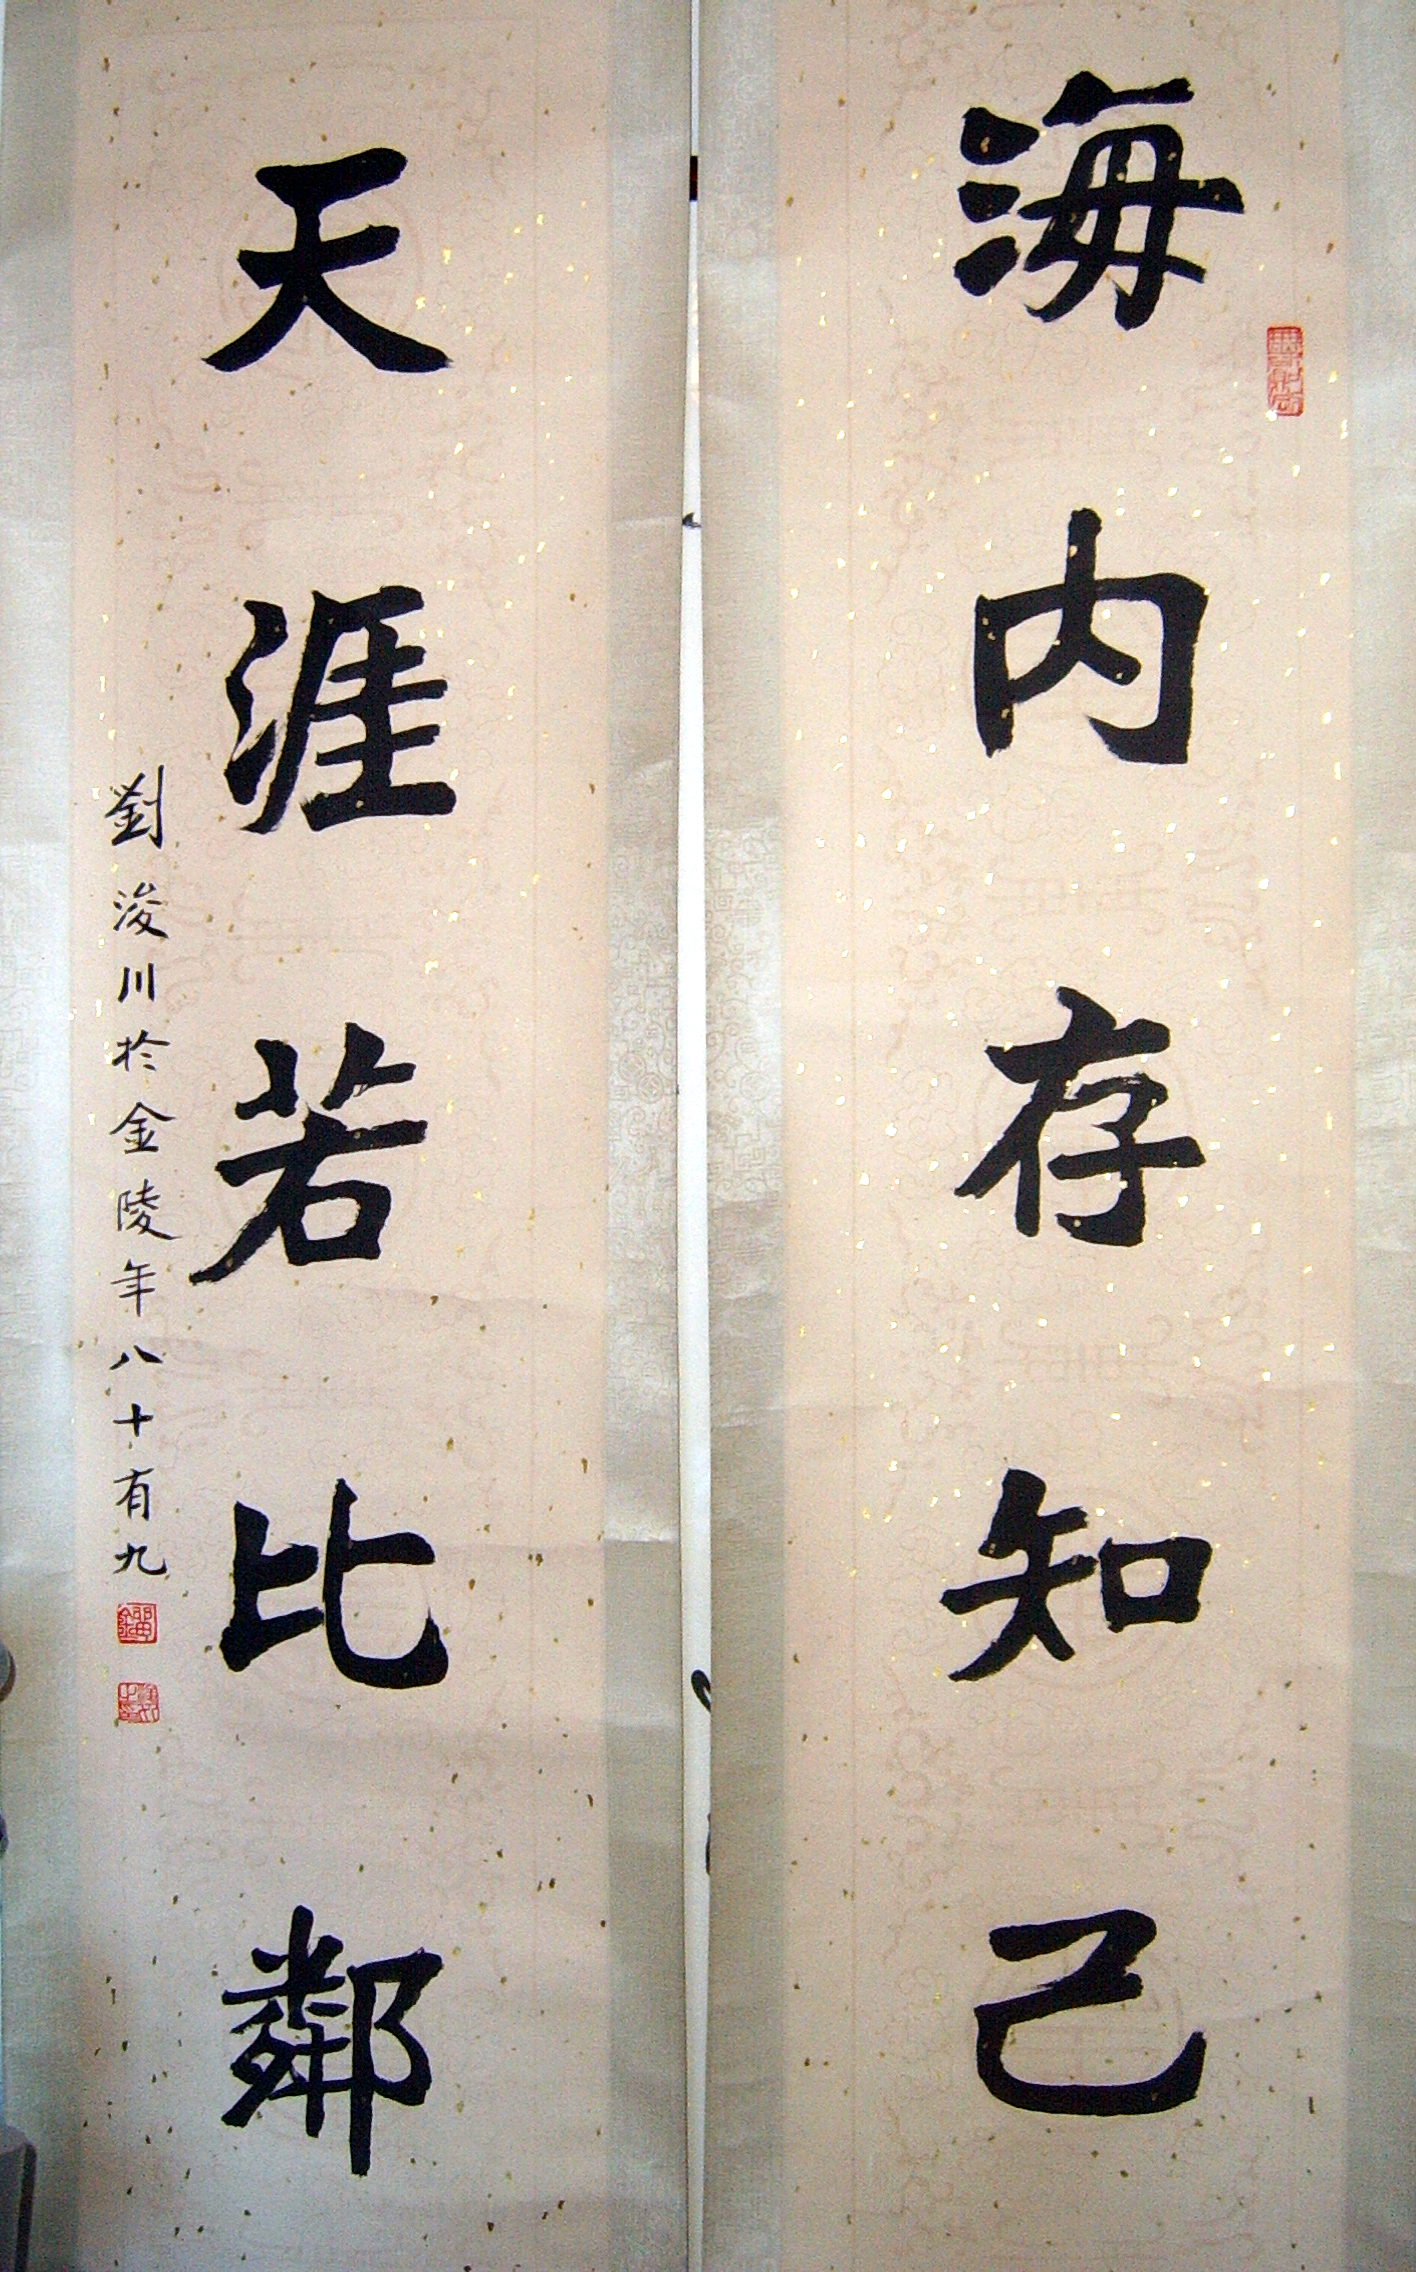 海内存知己
天涯若比鄰
劉浚川於金陵年八十有九